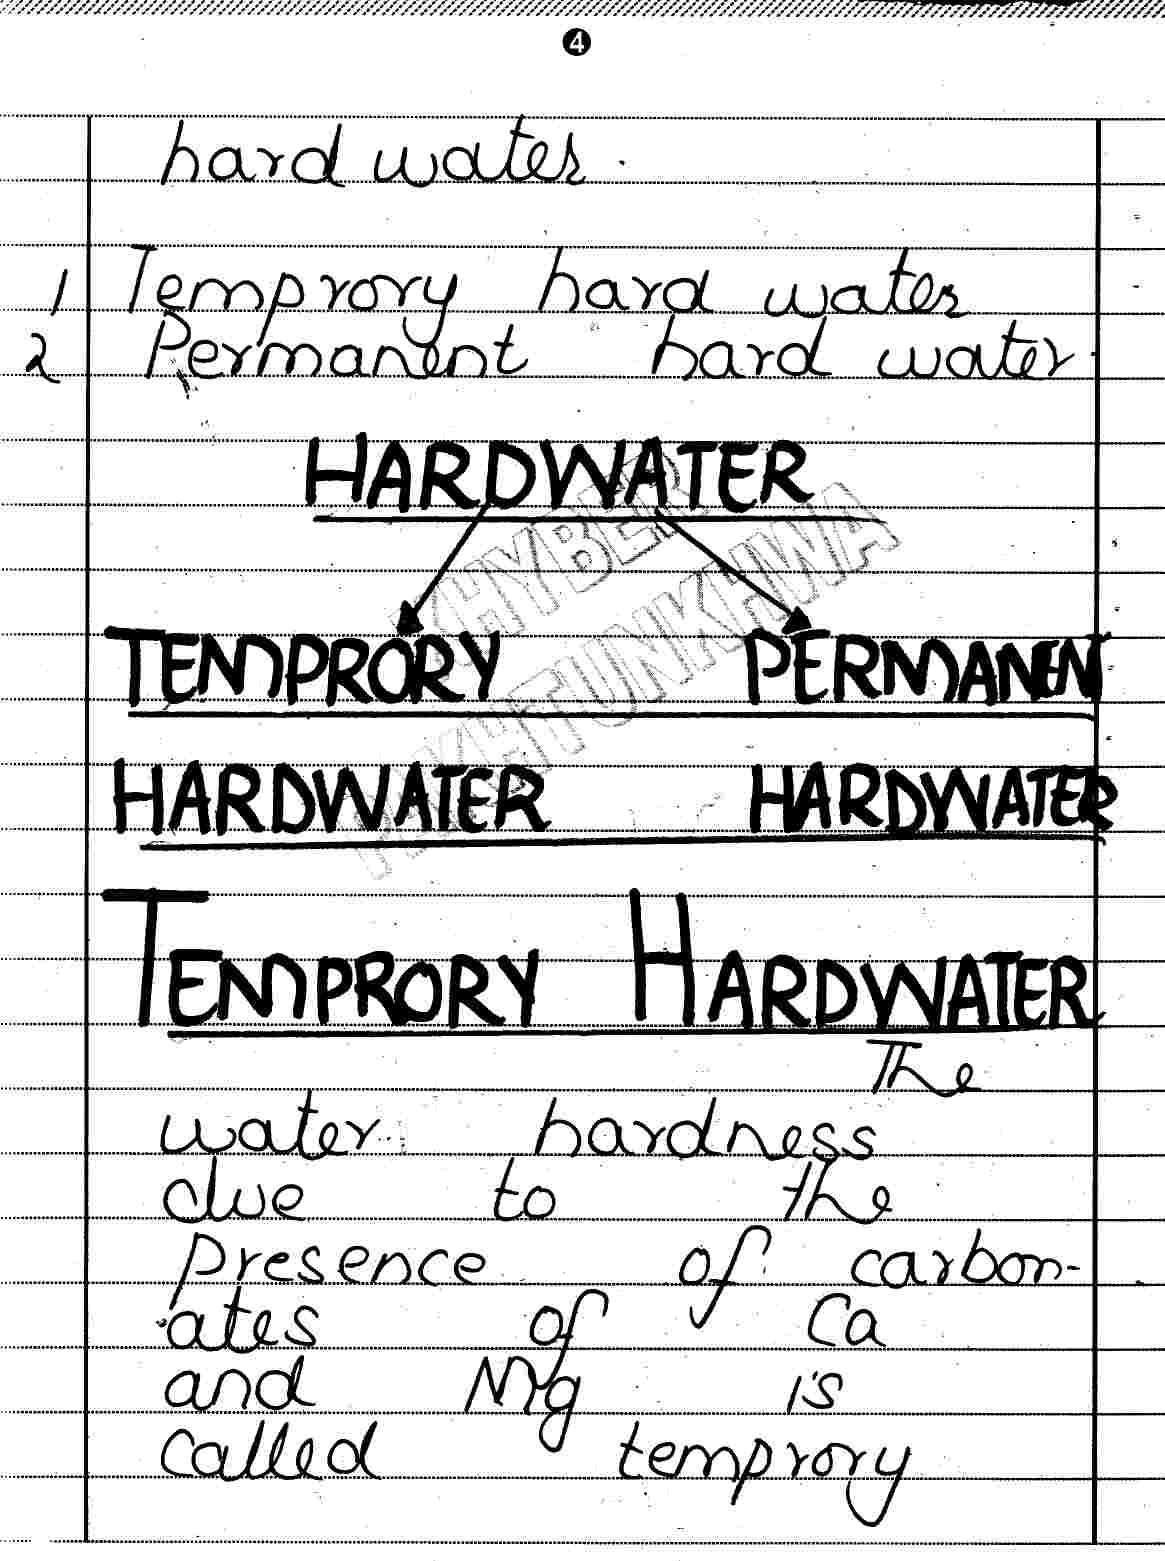 4
hard water.
1 Temprory hard water
2 Permanent hard water.
HARDWATER
KHYBER
PAKHTUNKHWA
TEMPRORY PERMANENT
HARDWATER HARDWATER
TEMPRORY HARDWATER
The
water hardness
due to the
presence of carbon-
ates of Ca
and Mg is
called temprory